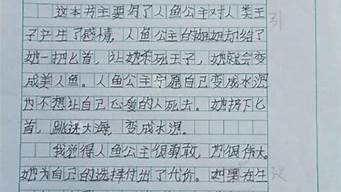 这本书主要写了人鱼公主对人类王
子产生了感情，人鱼公主的姐姐们给了
她一把匕首，让她杀死王子，她就会变
成美人鱼。人鱼公主宁愿自己变成水泡
也不想让自己心爱的人死去。她扔下匕
首，跳进大海，变成水泡。
我觉得人鱼公主很勇敢，也很伟大。
她为自己的选择付出了代价。如果在生